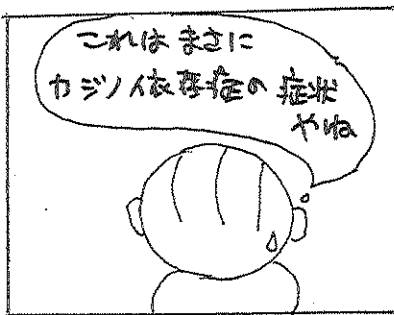 これは まさに
カジノ依存症の 症状
やね